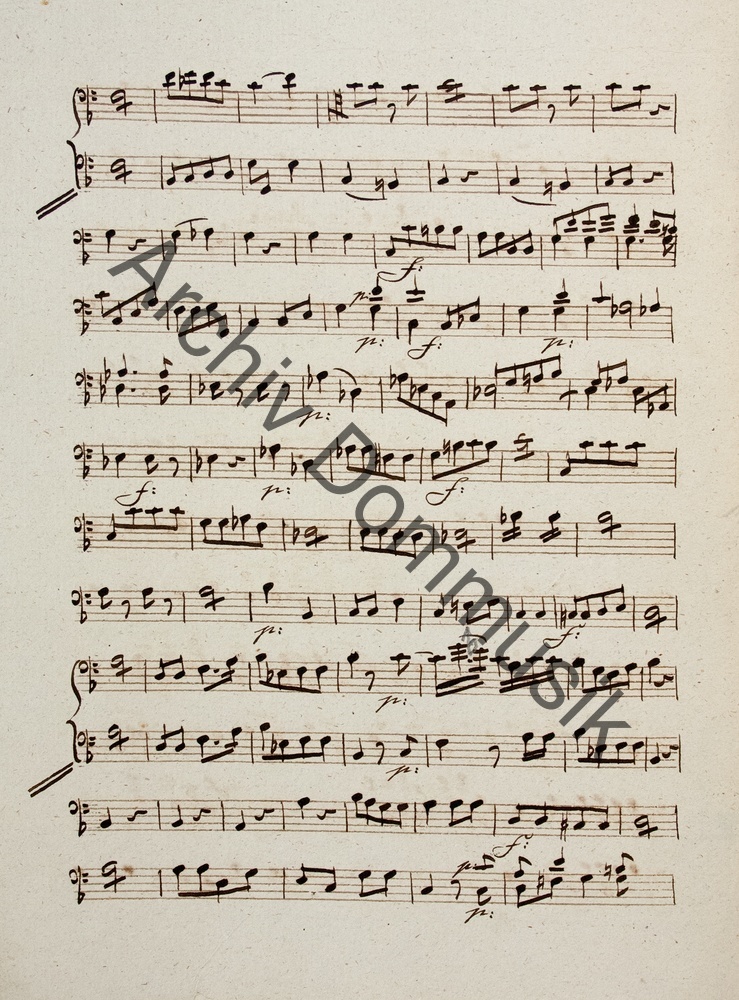 f:
p:
p: f: p:
p:
f: p: f:
p: f:
p:
p:
f:
p:
p:
Archiv Dommusik